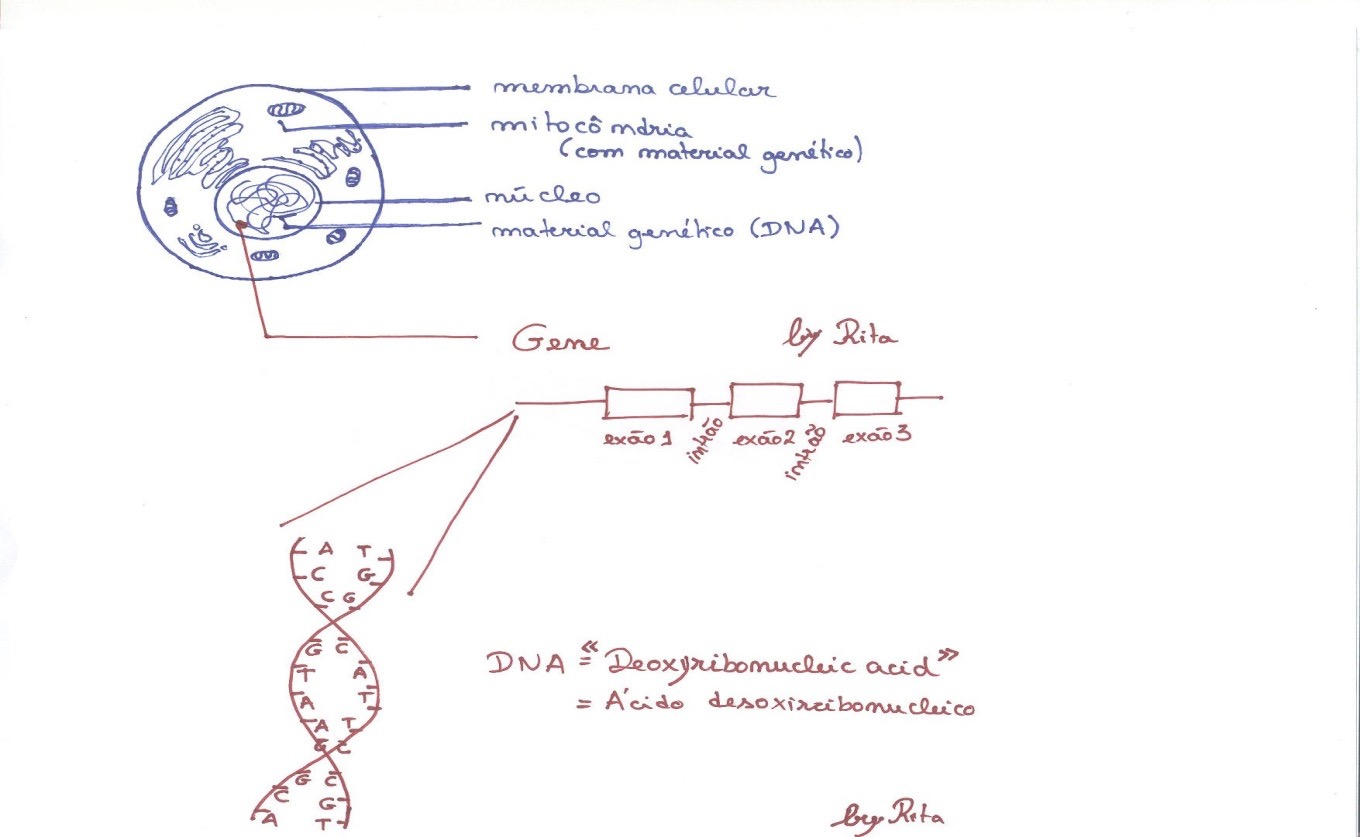 membrana celular
mitocôndria
(com material genético)
núcleo
material genético (DNA)
Gene
by Rita
exão 1 intrão exão 2 intrão exão 3
A T
C G
C G
G C
T A
A T
A T
G C
G C
C G
A T
DNA = «Deoxyribonucleic acid»
= Ácido desoxirribonucleico
by Rita